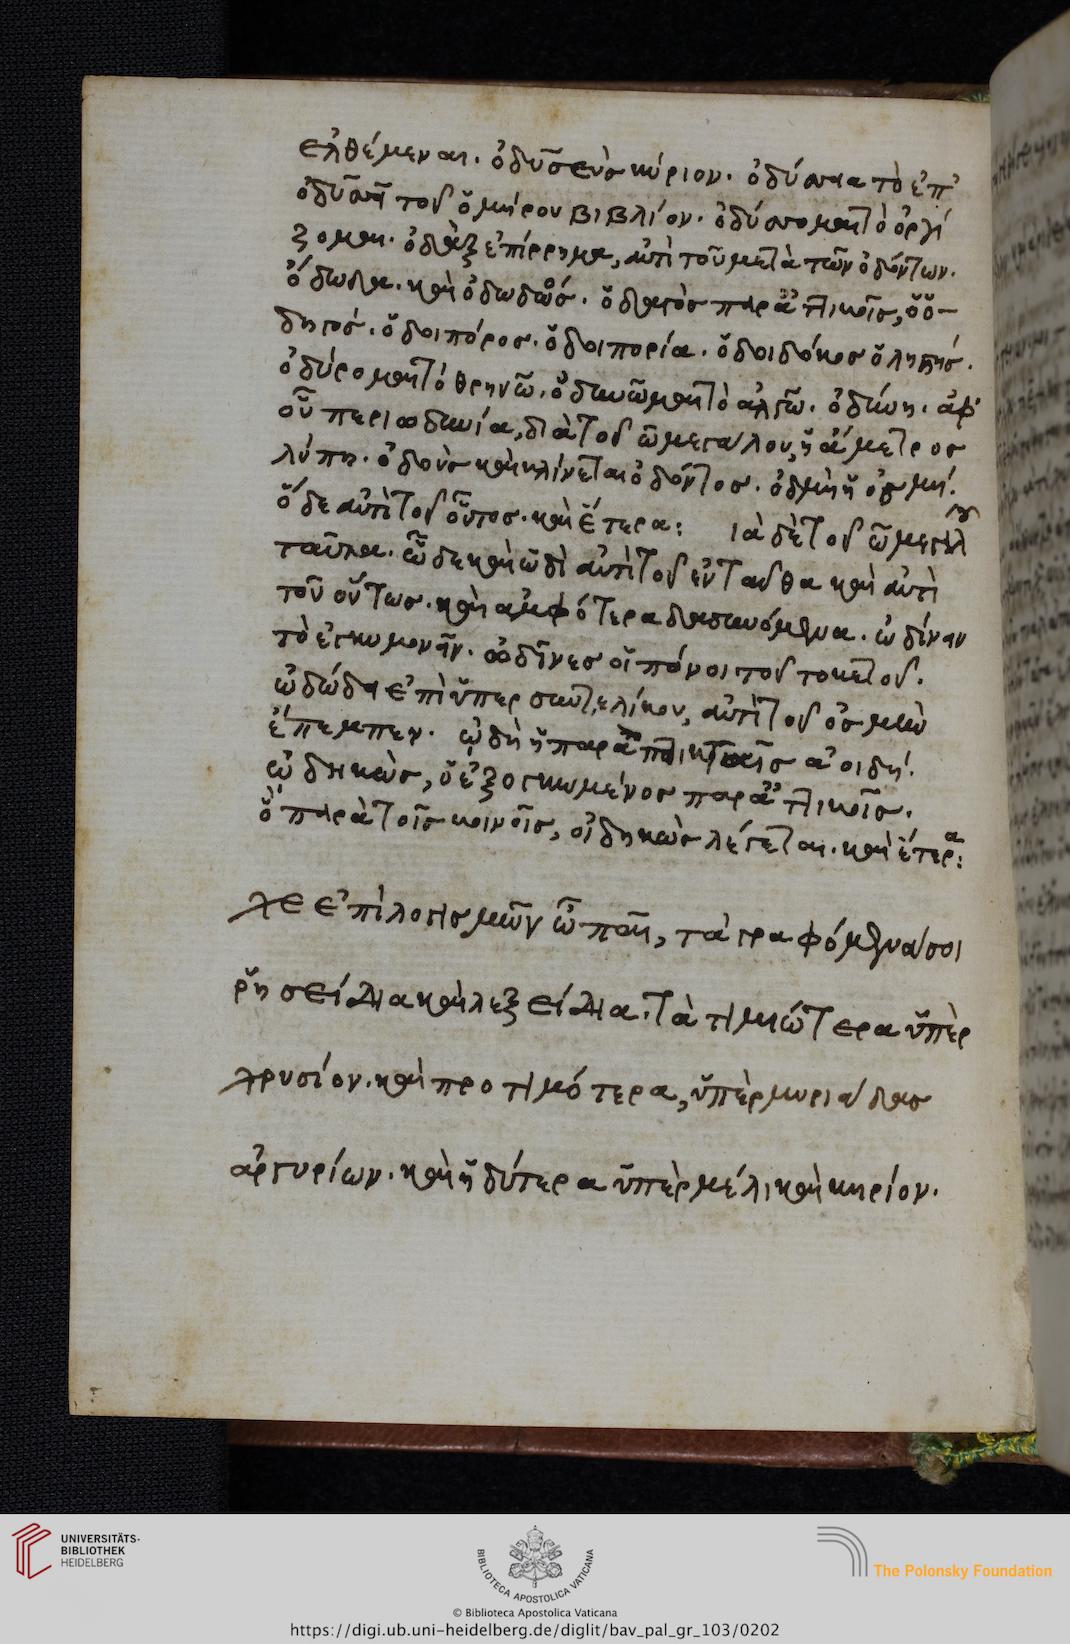 ἐλθέμεναι· ὀδυσσεὺς κύριον· ὀδύσσεια τὸ ἐπ'
ὀδυσσεῖ τοῦ ὁμήρου βιβλίον· ὀδύσσομαι τὸ ὀργί
ζομαι· ὀδὰξ ἐπίρρημα, ἀντὶ τοῦ μετὰ τῶν ὀδόντων·
ὄδωδα· καὶ ὀδωδὼς· ὁδαγὸς παρὰ ἀττικοῖς, ὁ ὁ-
δηγός· ὁδοιπόρος· ὁδοιπορία· ὁδοιδόκος ὁ ληστής·
ὀδύρομαι τὸ θρηνῶ· ὀδυνῶμαι τὸ ἀλγῶ· ὀδύνη· ἀφ'
οὗ περιωδυνία, διὰ τοῦ ω μεγάλου, ἡ ἄμετρος
λύπη· ὀδοὺς καὶ κλίνεται ὀδόντος· ὀδμὴ ἡ ὀσμή·
ὅδε ἀντὶ τοῦ οὗτος· καὶ ἕτερα: τὰ δὲ τοῦ ω μεγάλου
ταῦτα· ὧδε καὶ ὡδὶ ἀντὶ τοῦ ἐνταῦθα καὶ ἀντὶ
τοῦ οὕτως· καὶ ἀμφότερα δασυνόμενα· ὠδίνειν
τὸ ἐγκυμονεῖν· ὠδῖνες οἱ πόνοι τοῦ τοκετοῦ·
ὠδώδει ἐπὶ ὑπερσυντελίκου, ἀντὶ τοῦ ὀσμὴν
ἔπεμπεν· ὠδὴ ἡ παρὰ ποιηταῖς ἀοιδή·
ὠδηκὼς, ὁ ἐξογκωμένος παρὰ ἀττικοῖς·
ὃ παρὰ τοῖς κοινοῖς, οἰδηκὼς λέγεται· καὶ ἕτερα:
ἐπίλογισμῶν ὦ παῖ, τὰ γραφόμενά σοι
ῥησείδια καὶ λεξείδια· τὰ τιμιώτερα ὑπὲρ
χρυσίον· καὶ προτιμότερα, ὑπὲρ μυριάδας
ἀργυρίων· καὶ ἡδύτερα ὑπὲρ μέλι καὶ κηρίον·
UNIVERSITÄTS-
BIBLIOTHEK
HEIDELBERG
BIBLIOTECA APOSTOLICA VATICANA
The Polonsky Foundation
© Biblioteca Apostolica Vaticana
https://digi.ub.uni-heidelberg.de/diglit/bav_pal_gr_103/0202